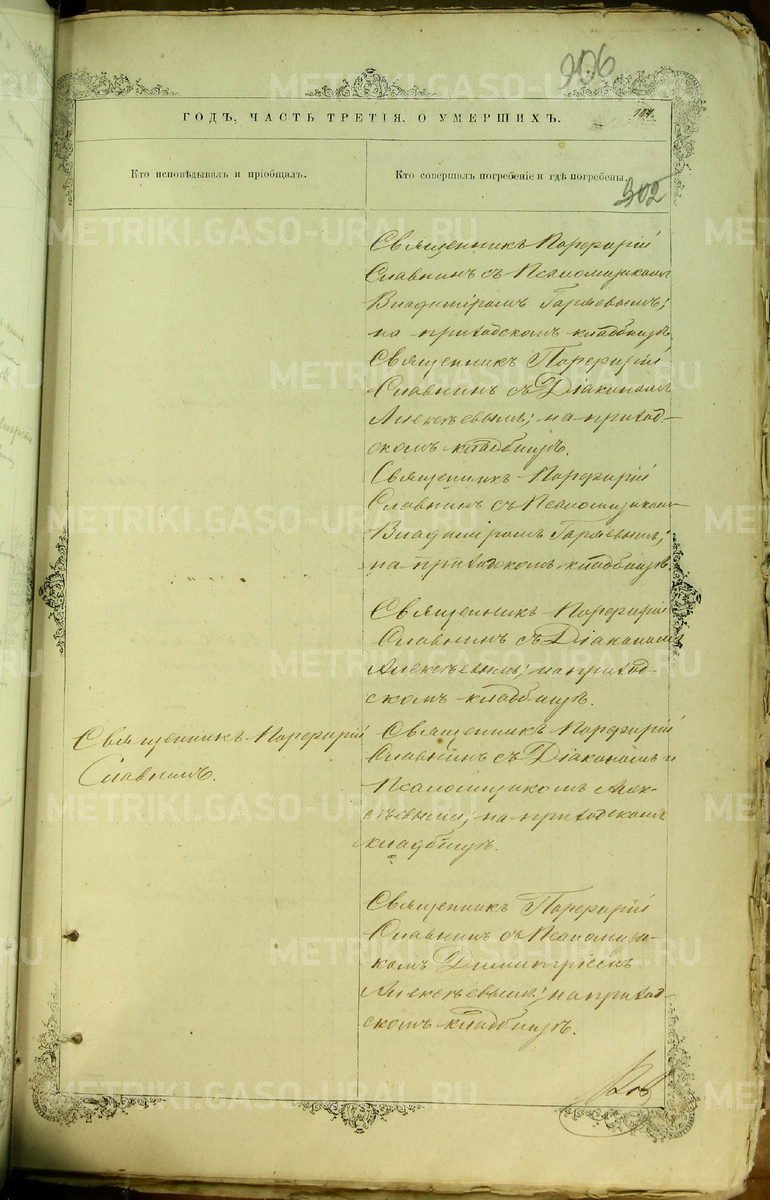 906
ГОДЪ, ЧАСТЬ ТРЕТІЯ, О УМЕРШИХЪ.
Кто исповѣдывалъ и пріобщалъ.
Кто совершалъ погребеніе и гдѣ погребены.
302
Священникъ Порфирій
Славнинъ съ Псаломщикомъ
Владиміромъ Гаряевымъ;
на приходскомъ кладбищѣ.
Священникъ Порфирій
Славнинъ съ Діакономъ
Алексѣевымъ; на приход-
скомъ кладбищѣ.
Священникъ Порфирій
Славнинъ съ Псаломщикомъ
Владиміромъ Гаряевымъ;
на приходскомъ кладбищѣ
Священникъ Порфирій
Славнинъ съ Діакономъ
Алексѣевымъ; на приход-
скомъ кладбищѣ.
Священникъ Порфирій
Славнинъ.
Священникъ Порфирій
Славнинъ съ Діакономъ и
Псаломщикомъ Алек-
сѣевыми; на приходскомъ
кладбищѣ.
Священникъ Порфирій
Славнинъ съ Псаломщи-
комъ Димитріемъ
Алексѣевымъ; на приход-
скомъ кладбищѣ.
METRIKI.GASO-URAL.RU